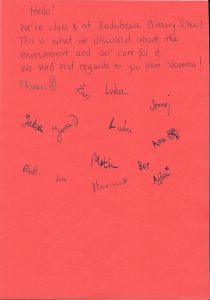 Hello!
We're class 8 at Primary School
This is what we discussed about the
environment and our care for it.
We send best regards to you from Slovenia!
Žan Luka
Jernej
Jaka Jana Luka
Ana
Matic
Rok Iva Bor Ajša